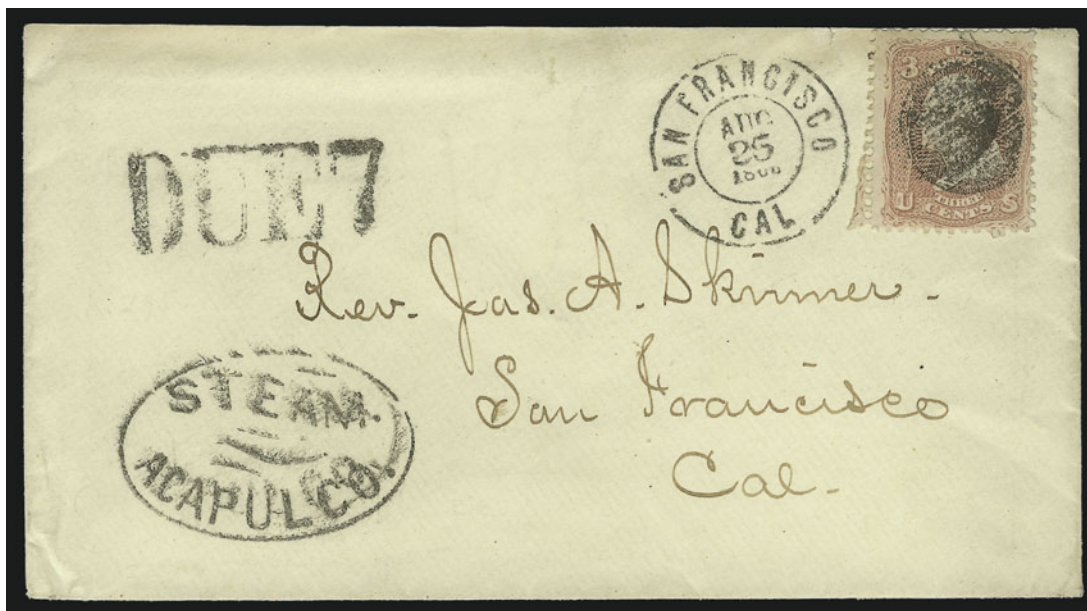 SAN FRANCISCO
AUG
25
CAL
3
U
CENTS
S
DUE 7
Rev. Jas. A. Skinner.
San Francisco
Cal.
STEAM.
ACAPULCO.